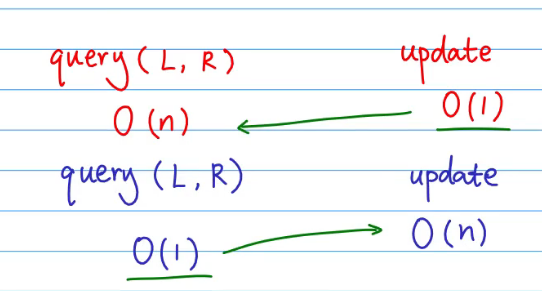 query (L, R) update
O(n) O(1)
query (L, R) update
O(1) O(n)